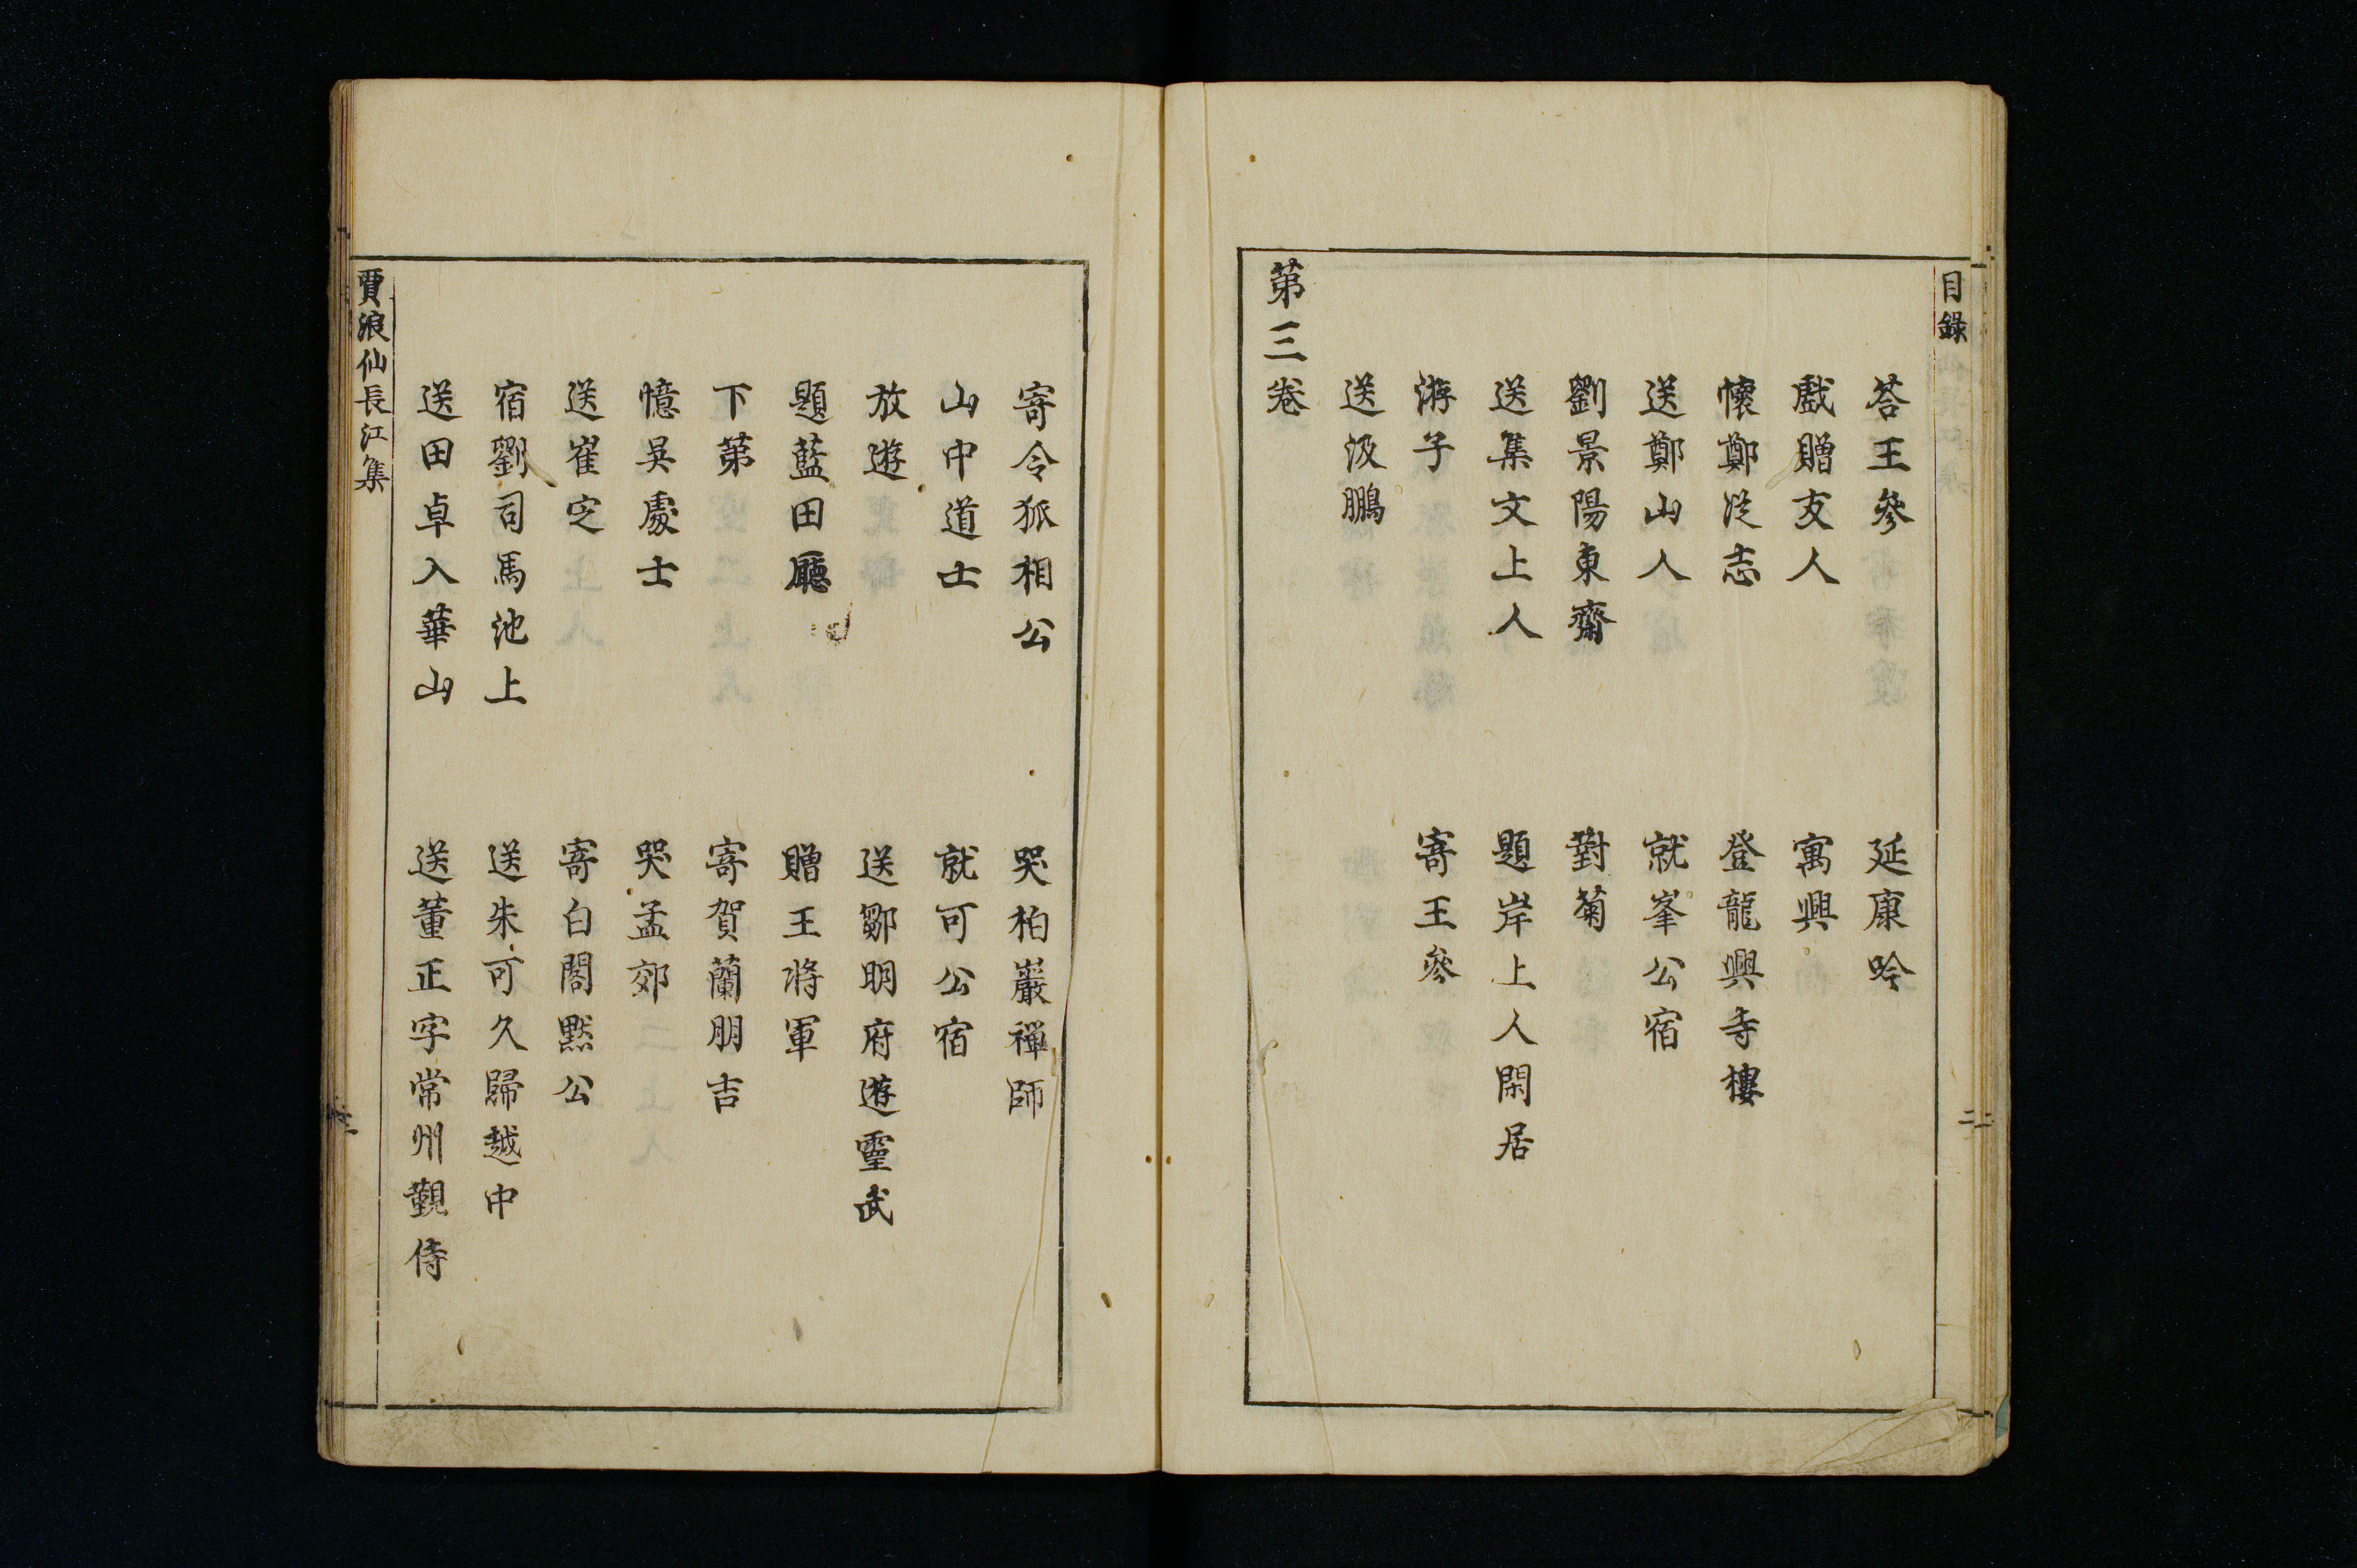 目錄
荅王參
延康吟
戲贈友人
寓興
懷鄭從志
登龍興寺樓
送鄭山人
就峯公宿
劉景陽東齋
對菊
送集文上人
題岸上人閑居
游子
寄王參
送汲鵬
第三卷
寄令狐相公
哭柏巖禪師
山中道士
就可公宿
放遊
送鄒明府遊靈武
題藍田廳
贈王將軍
下第
寄賀蘭朋吉
憶吳處士
哭孟郊
送崔定
寄白閣默公
宿劉司馬池上
送朱可久歸越中
送田卓入華山
送董正字常州覲侍
賈浪仙長江集